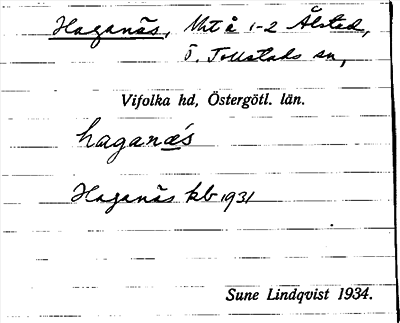 Haganäs, Utt å 1-2 Ålstad,
Ö. Tollstads sn,
Vifolka hd, Östergötl. län.
haganǽs
Haganäs kb 1931
Sune Lindqvist 1934.